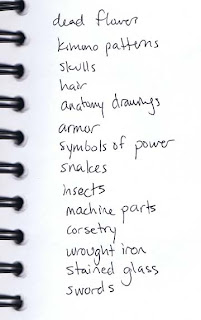 dead flower
kimono patterns
skulls
hair
anatomy drawings
armor
symbols of power
snakes
insects
machine parts
corsetry
wrought iron
stained glass
swords